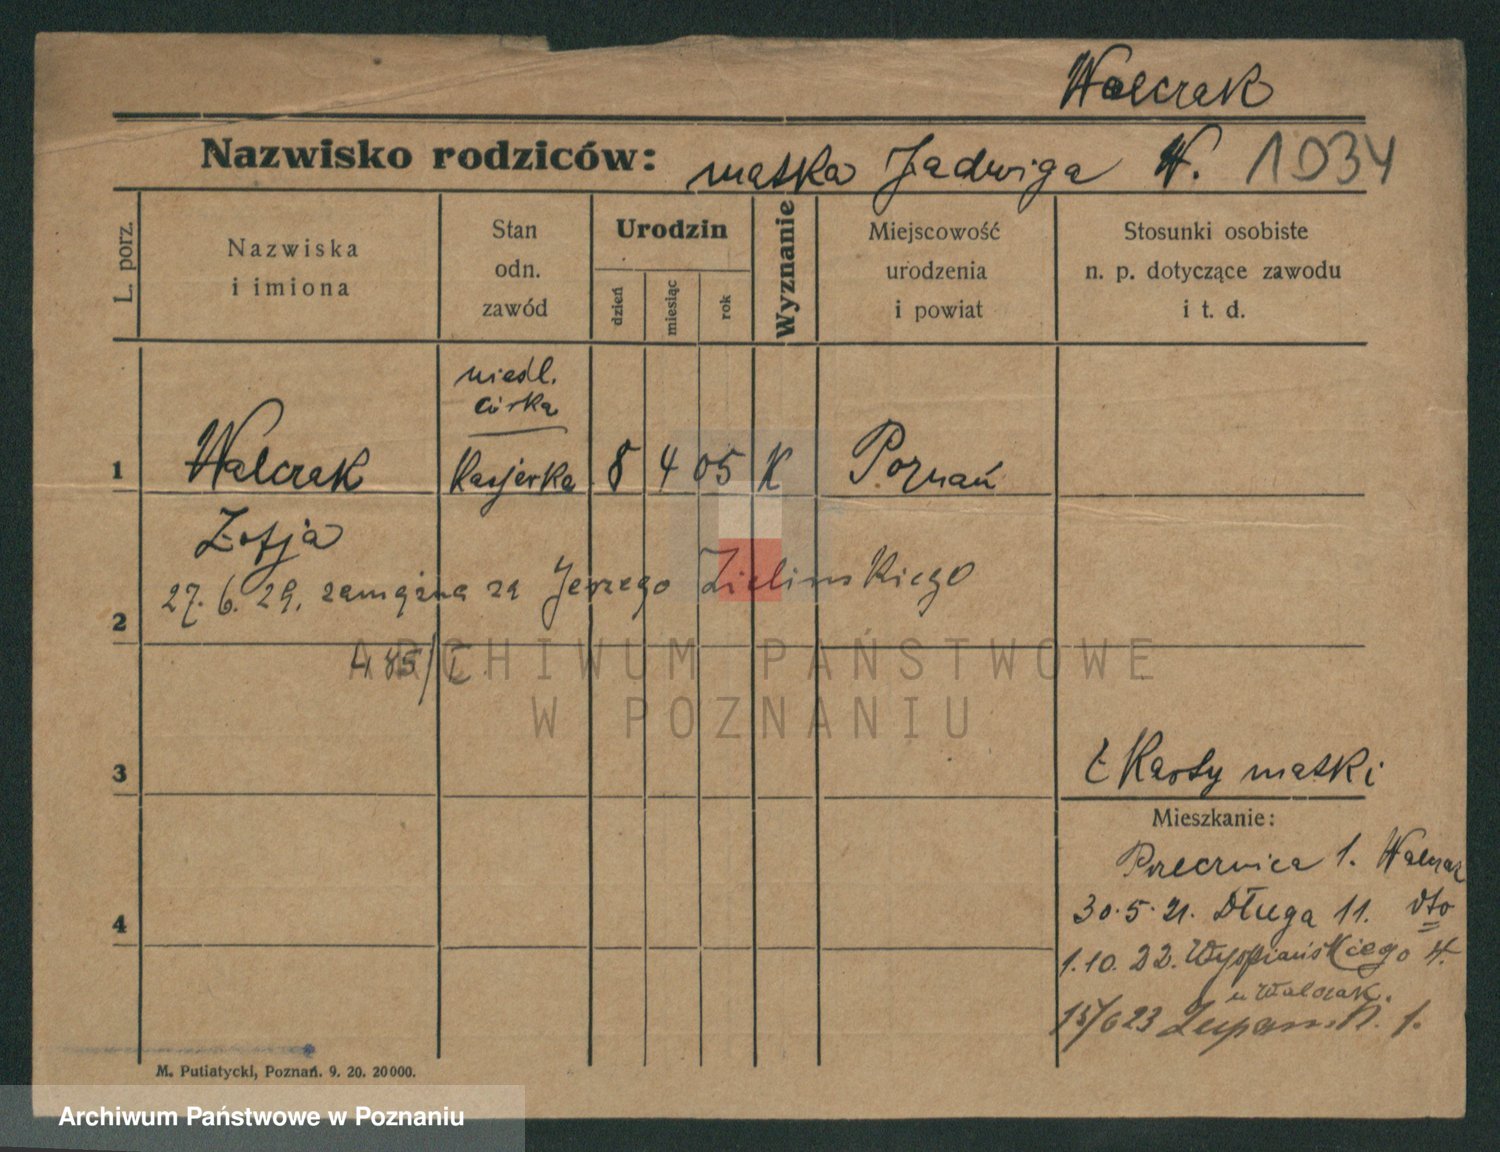 Walczak
Nazwisko rodziców: matka Jadwiga W. 1934
L. porz.
Nazwiska
i imiona
Stan
odn.
zawód
Urodzin
dzień
miesiąc
rok
Wyznanie
Miejscowość
urodzenia
i powiat
Stosunki osobiste
n. p. dotyczące zawodu
i t. d.
niedl.
córka
1 Walczak Kasjerka 8 4 05 K Poznań
Zofja
27. 6. 29. zamężna za Jerzego Zielinskiego
2
485/I
ARCHIWUM PAŃSTWOWE
W POZNANIU
3
z Karty matki
Mieszkanie:
1. Walczak
4
30.5.21. Długa 11. dto
1.10.22. Wyspiańskiego 4.
u Walczak.
15/6 23 Zupansk. 1.
M. Putiatycki, Poznań. 9. 20. 20000.
Archiwum Państwowe w Poznaniu